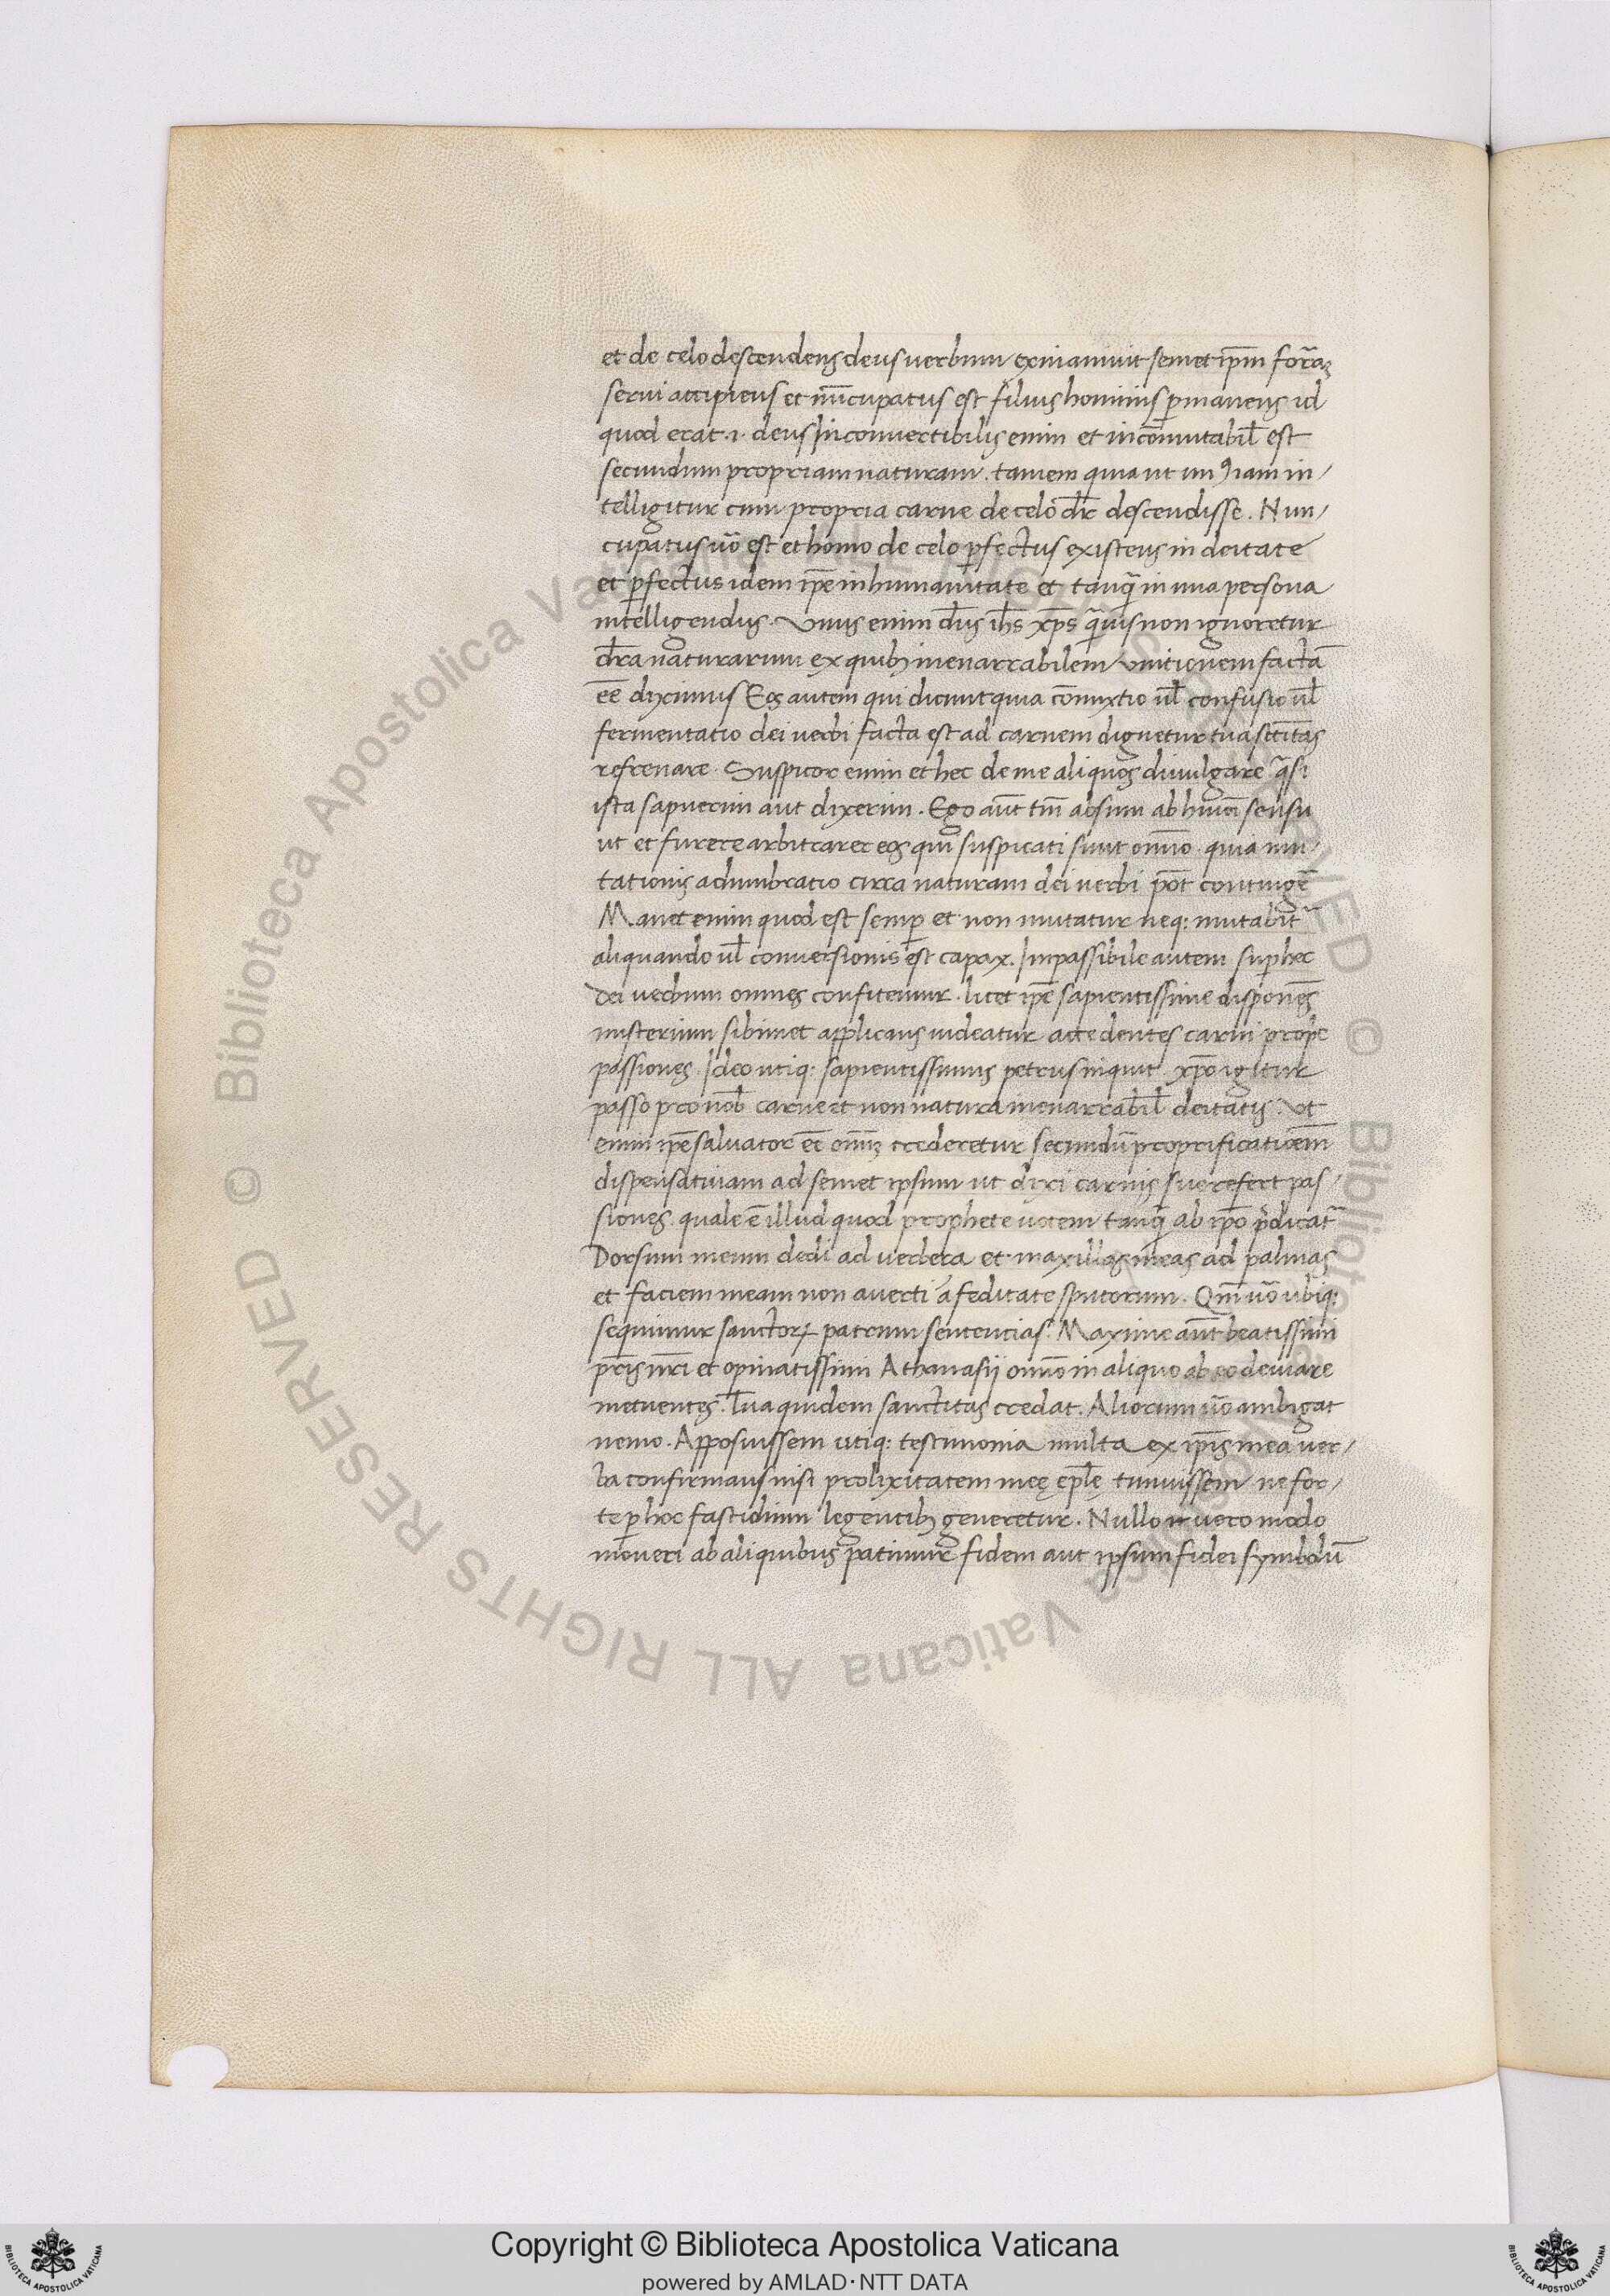 et de celo descendens deus verbum exinanivit semet ip̄m for̄aꝫ
servi accipiens et nūcupatus est filius hominis ꝑmanens id
quod erat .i. deus Inconvertibilis enim et incōmutabil̄ est
secundum propriam naturam. tamem quia ut un ꝯ iam in/
telligitur cum propria carne de celo dr̄ descendisse. Nun/
cupatus uō est et homo de celo ꝑfectus existens in deitate
et ꝑfectus idem ip̄e in humanitate et tanq̄ in una persona
intelligendus. Unus enim dn̄s ih̄s xp̄s q̄uis non ignoretur
dr̄a naturarum ex quibꝫ inenarrabilem unitionem factā
eē diximus Eos autem qui dicunt quia cōmixtio ul̄ confusio ul̄
fermentatio dei verbi facta est ad carnem dignetur tua sc̄itas
refrenare. Suspicor enim et hec de me aliquos divulgare q̄si
ista sapuerim aut dixerim. Ego aūt tm̄ absum ab huiōi sensu
ut et furere arbitrarer eos qui suspicati sunt om̄o quia mu/
tationis adumbratio circa naturam dei verbi pōt contingē
Manet enim quod est semꝑ et non mutatur neq: mutabit̄
aliquando ul̄ conversionis est capax. Impassibile autem suꝑ hec
Dei verbum omnes confitemur. licet ip̄e sapientissime disponēs
misterium sibimet applicans uideatur accedentes carni propē
passiones. Ideo utiq: sapientissimus petrus inquit. xp̄o igitur
passo pro nob̄ carne et non natura inenarrabil̄ deitatis. Ut
enim ip̄e salvator eē om̄iꝫ crederetur secundū proprificatiōem
dispensativam ad semet ipsum ut dixi carnis sue refert pas/
siones. quale ē illud quod prophete vocem tanq̄ ab ip̄o p̄dicat̄
Dorsum meum dedi ad verbera et maxillas meas ad palmas
et faciem meam non averti a feditate sputorum. Qm̄ uō ubiq:
sequimur sanctoꝝ patrum sententias. Maxime aūt beatissimi
pr̄is nr̄i et opinatissimi Athanasij om̄o in aliquo ab eo deviare
metuentes. Tua quidem sanctitas credat. Aliorum uō ambigat
nemo. Apposuissem utiq: testimonia multa ex ip̄is mea ver/
ba confirmans nisi prolixitatem meę epl̄ę timuissem ne for/
te ꝑ hoc fastidium legentibꝫ generetur. Nullo vero modo
moveri ab aliquibus patimur fidem aut ipsum fidei symbolū
Copyright © Biblioteca Apostolica Vaticana
powered by AMLAD·NTT DATA
© Biblioteca Apostolica Vaticana ALL RIGHTS RESERVED
BIBLIOTECA APOSTOLICA VATICANA
BIBLIOTECA APOSTOLICA VATICANA